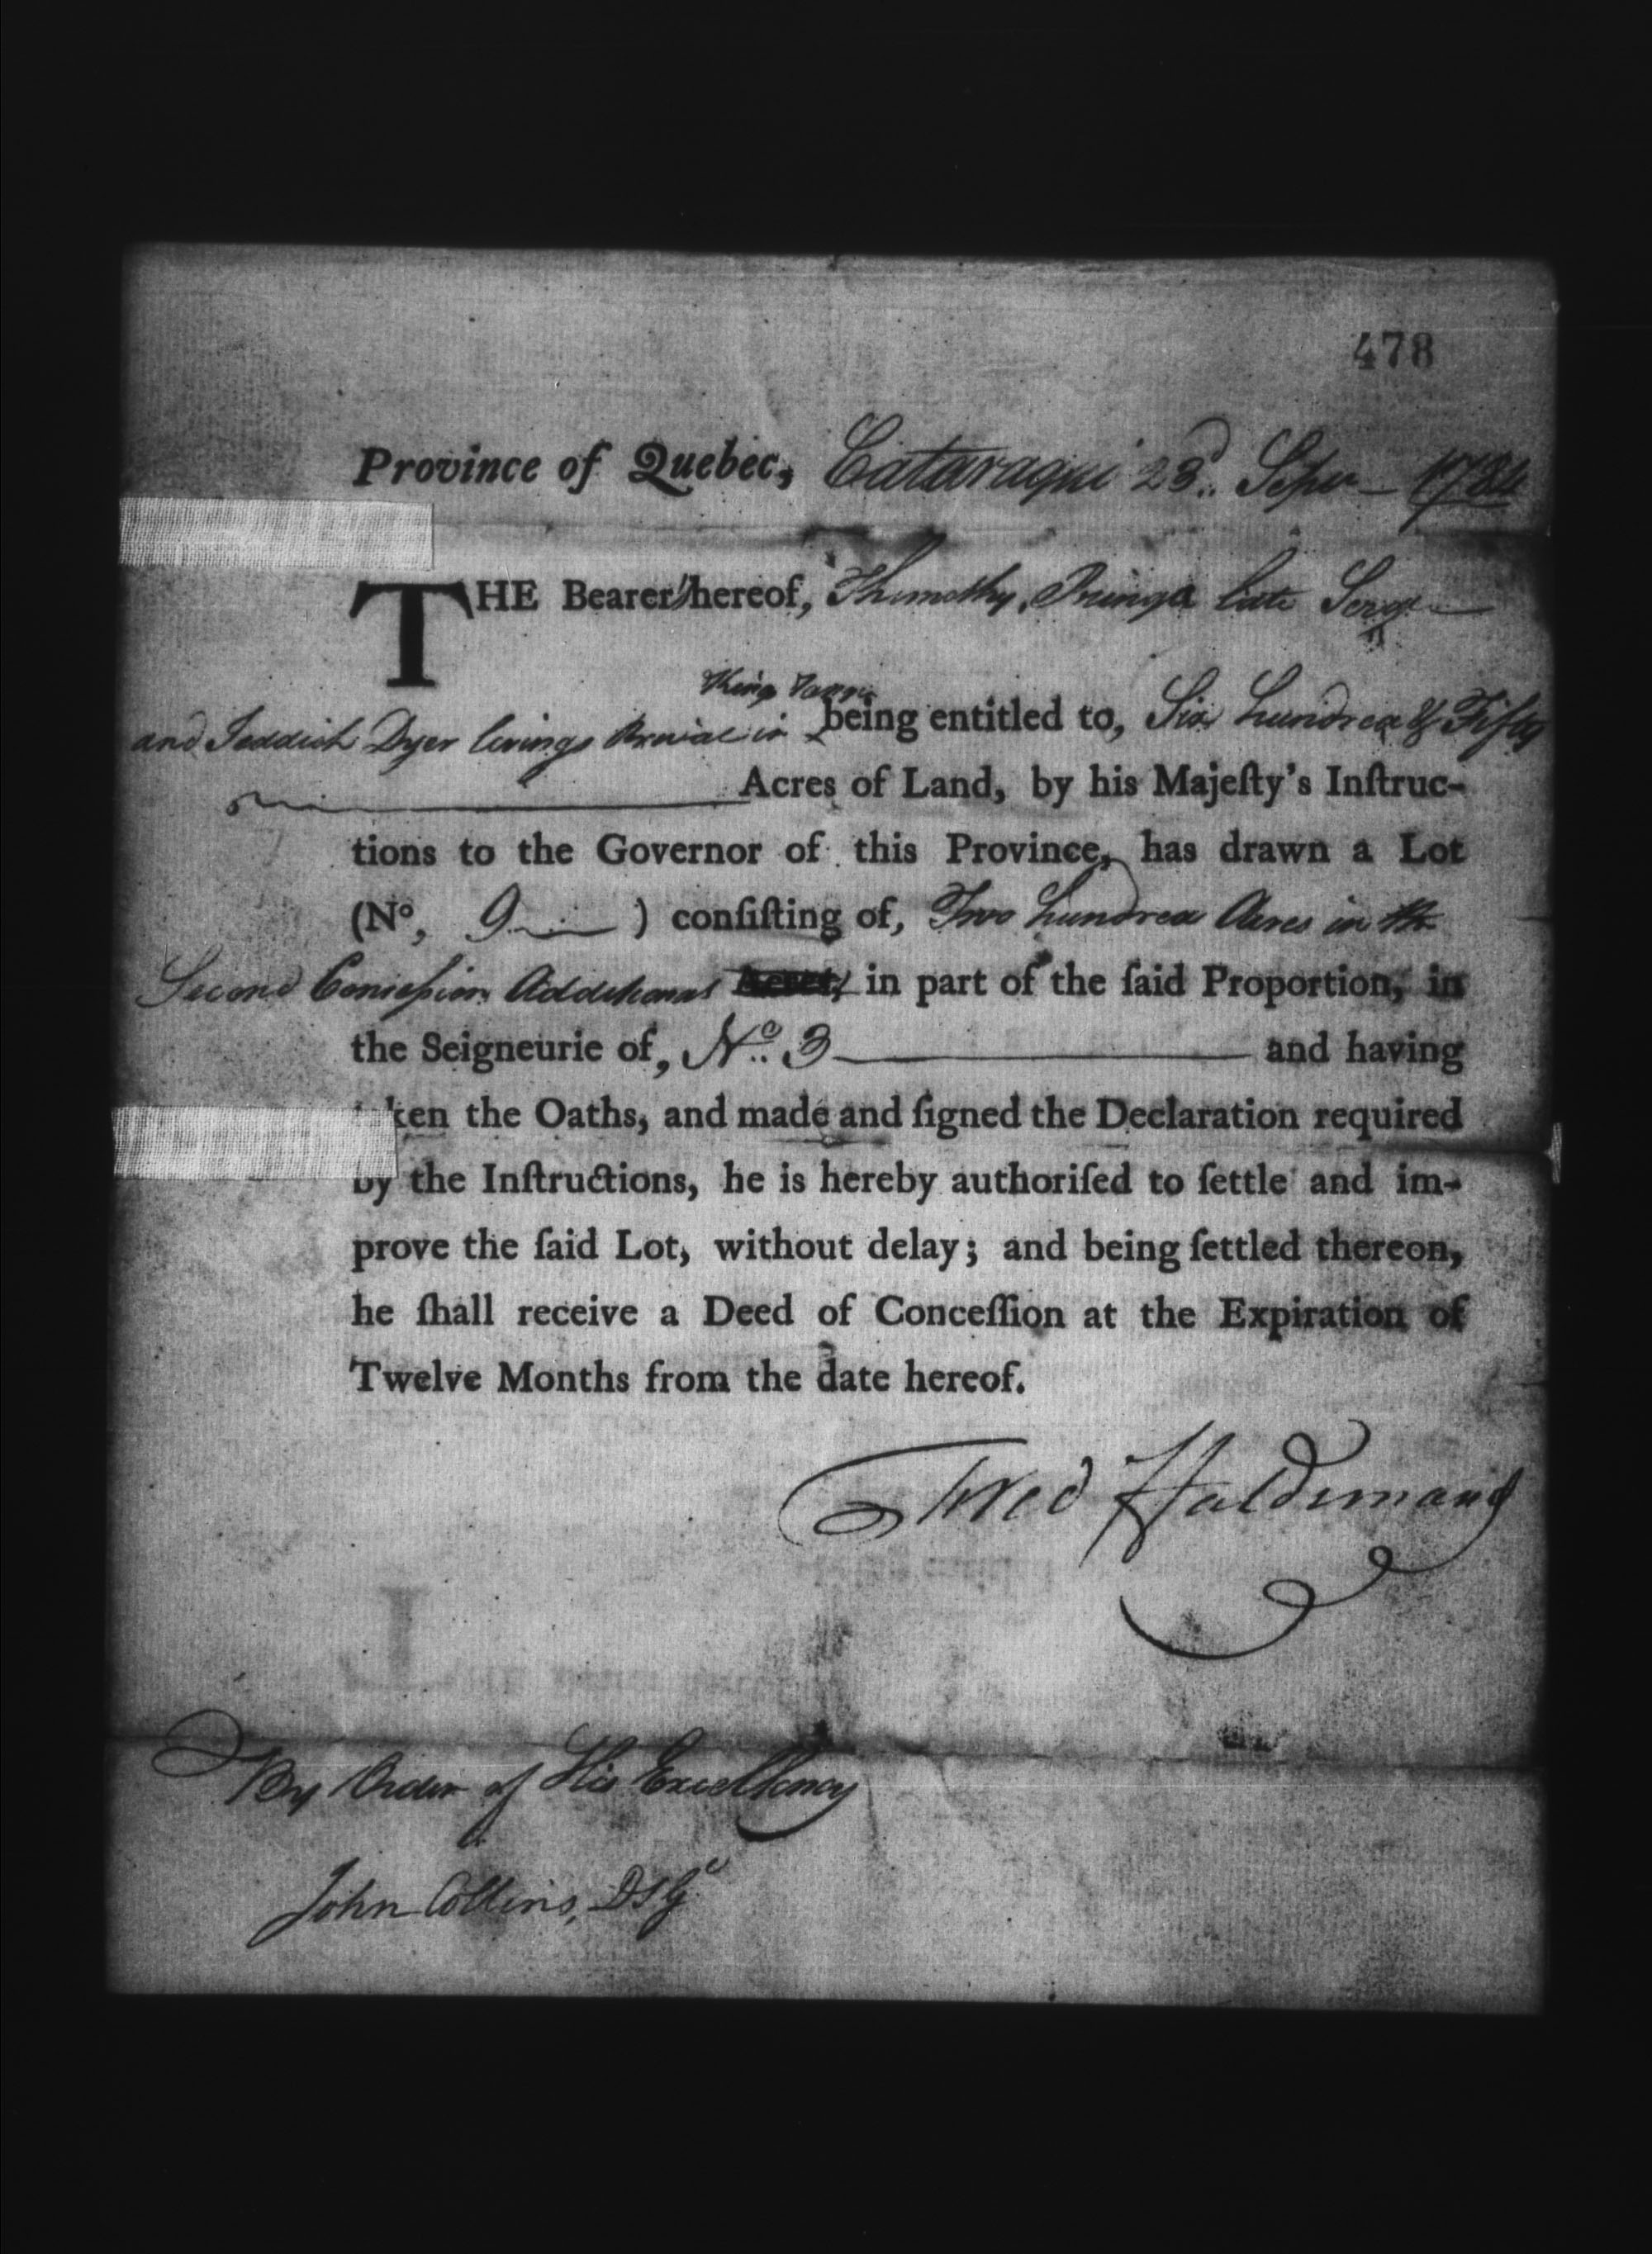 478
Province of Quebec, Cataraqui 23d.. Sepr — 1784
THE Bearer hereof, Thimothy Pringa late Serg
King
and Jeddiah Dyer livings in being entitled to, Six hundred & Fifty
Acres of Land, by his Majeſty's Inſtruc-
tions to the Governor of this Province, has drawn a Lot
(Nº, 9 ) conſiſting of, Two hundred Acres in the
Second Concession Additional Acres, in part of the ſaid Proportion, in
the Seigneurie of, Nº.. 3 and having
ken the Oaths, and made and ſigned the Declaration required
by the Inſtructions, he is hereby authoriſed to ſettle and im-
prove the ſaid Lot, without delay; and being ſettled thereon,
he ſhall receive a Deed of Conceſſion at the Expiration of
Twelve Months from the date hereof.
Fred Haldimand
By Order of His Excellency
John Collins, DSGl